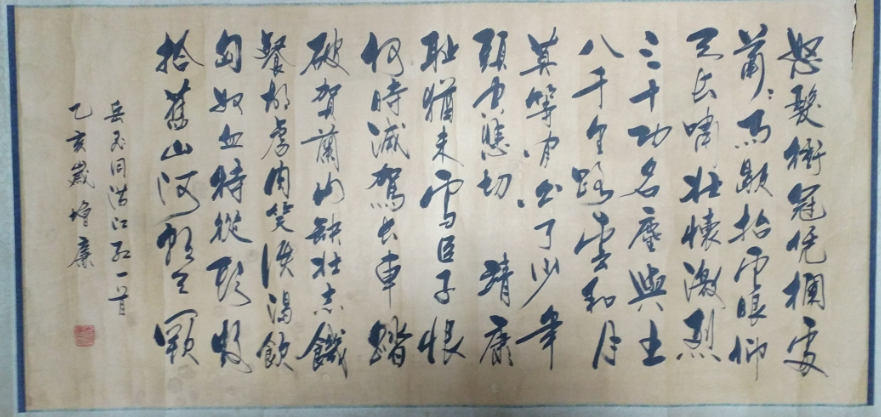 怒髮衝冠凭欄處
蕭〻雨歇抬望眼仰
天長嘯壯懷激烈
三十功名塵與土
八千里路雲和月
莫等閒白了少年
頭空悲切　靖康
恥猶未雪臣子恨
何時滅駕長車踏
破賀蘭山缺壯志饑
餐胡虜肉笑談渴飲
匈奴血待從頭收
拾舊山河朝天闕
岳飛詞滿江紅一首
乙亥歲增廉